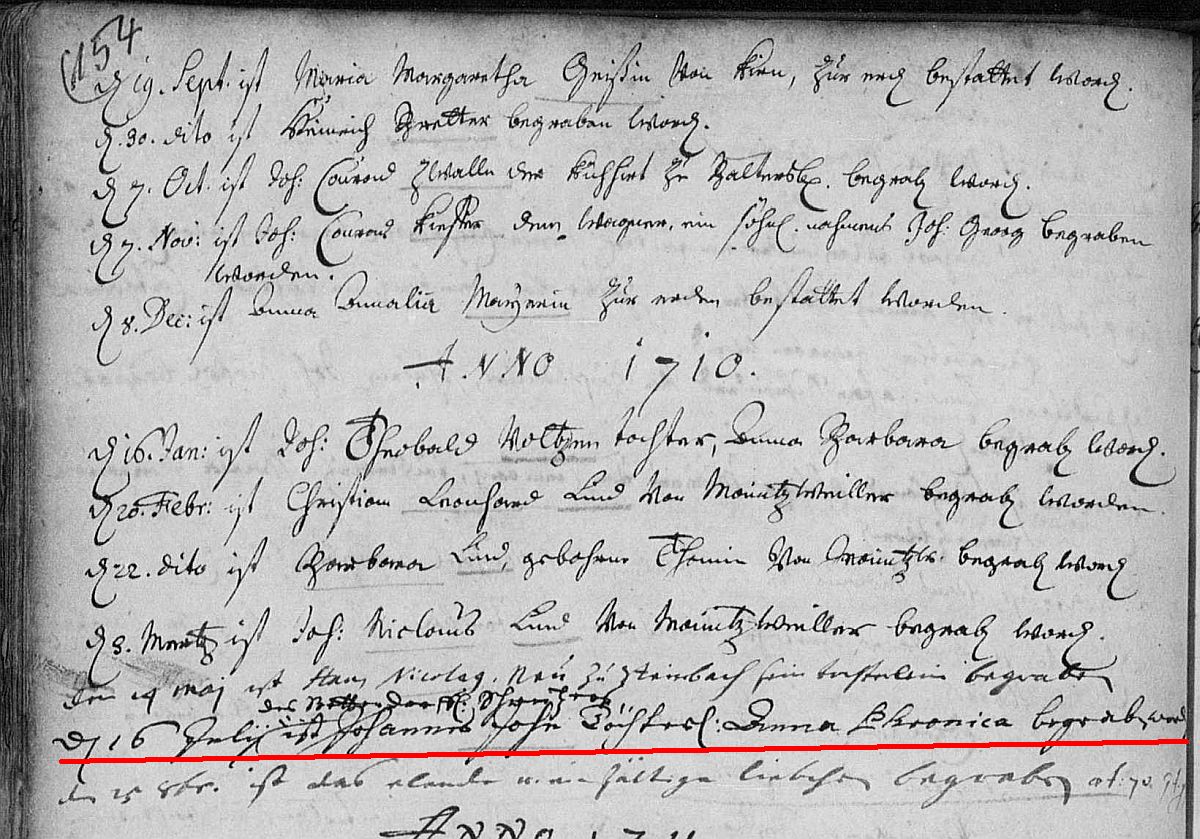 154
d 19. Sept. ist Maria Margaretha Geißin Von Kirn, zur erd bestattet word.
d. 30. dito ist Heinrich Bretter begraben word.
d 7. Oct. ist Joh: Conrad Zwalle der Kühhirt zu begrab word.
d 7. Nov: ist Joh: Conrad Kieffer dem Wagner, ein söhnl. nahmens Joh: Georg begraben
worden.
d 8. Dec: ist Anna Amalia Mayerin zur erden bestattet worden.
ANNO 1710.
d 16. Jan: ist Joh: Theobald tochter, Anna Barbara begrab word.
d 20. Febr: ist Christian Leonhard Lind Von Mäuntzweiller begrab worden.
d 22. dito ist Barbara Lind, gebohrne Von begrab word
d 8. Mertz ist Joh: Niclaus Lind Von Mäuntzweiller begrab word.
den 19 maj ist Hans Nicolag. Neu zu Steinbach sein begraben
des
d 16 Julij ist Johannes Töchterl: Anna Veronica begrab word
den 25 8br. ist das elende u. einfältige liebchen begraben
ANNO 1711